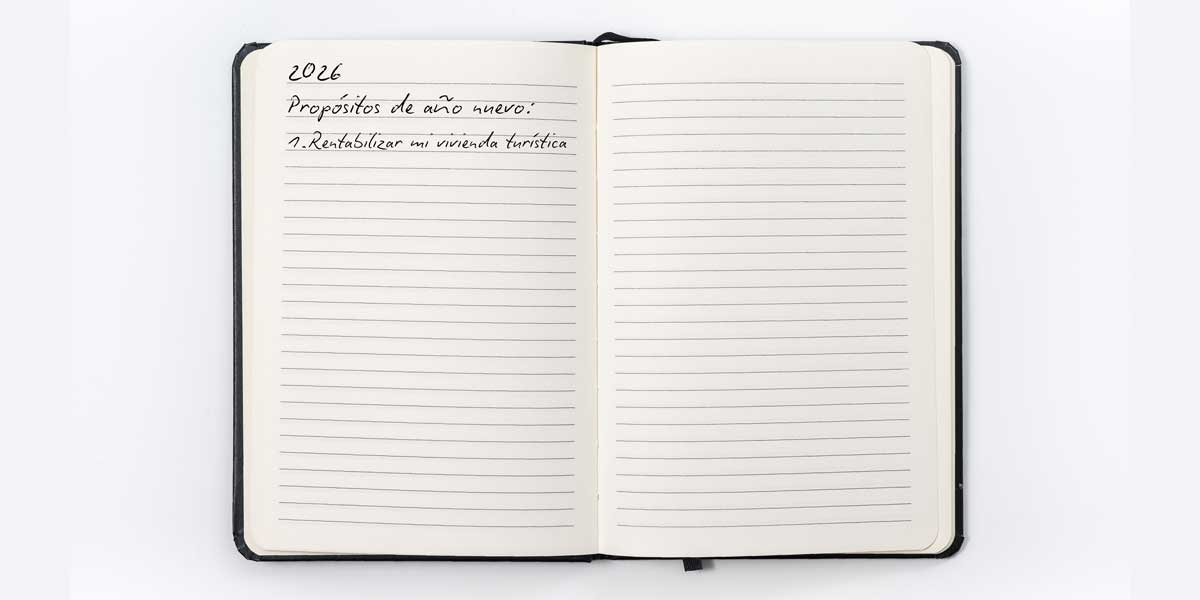 2026
Propósitos de año nuevo:
1. Rentabilizar mi vivienda turística